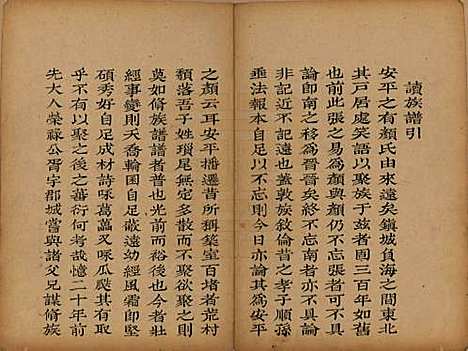 讀族譜引
安平之有顏氏由來遠矣鎮城負海之間東北
其戶居處笑語以聚族于兹者國三百年如舊
也前此張之易為顏與顏仍不忘張者可不具
論即南之移為晉晉終不忘南者亦不具論而
非記近不記遠也蓋敦族敘倫昔之孝子順孫
垂法報本自足以不忘則今日亦論其為安平
之顏云耳安平播遷昔所稱築室百堵者荒村
頹落吾子姓瑣尾無定多多而不聚欲聚之道
莫如脩族譜譜者普也光前裕後也今者壯
經事變則天喬輪囷自足蔽遠幼經風霜即堅
碩秀好自足成材詩咏葛藟又咏瓜瓞其有於
乎不有以聚之後之蕃衍何考哉憶二十年前
先大人榮祿公胥宇郡城嘗與諸父兄謀脩族